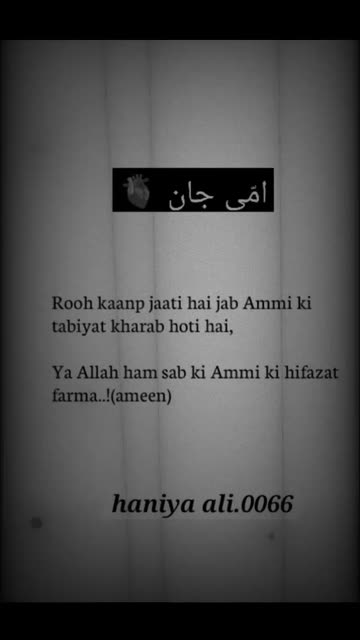 امّی جان 🫀
Rooh kaanp jaati hai jab Ammi ki
tabiyat kharab hoti hai,
Ya Allah ham sab ki Ammi ki hifazat
farma..!(ameen)
haniya ali.0066